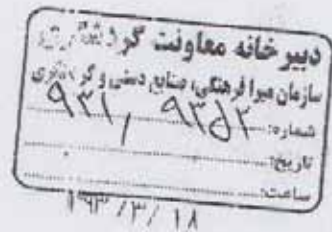 دبیرخانه معاونت گردشگری
سازمان میراث فرهنگی، صنایع دستی و گردشگری
شماره: ۹۳۱/۹۳۵۲
تاریخ:
ساعت:
۱۳۹۳/۳/۱۸